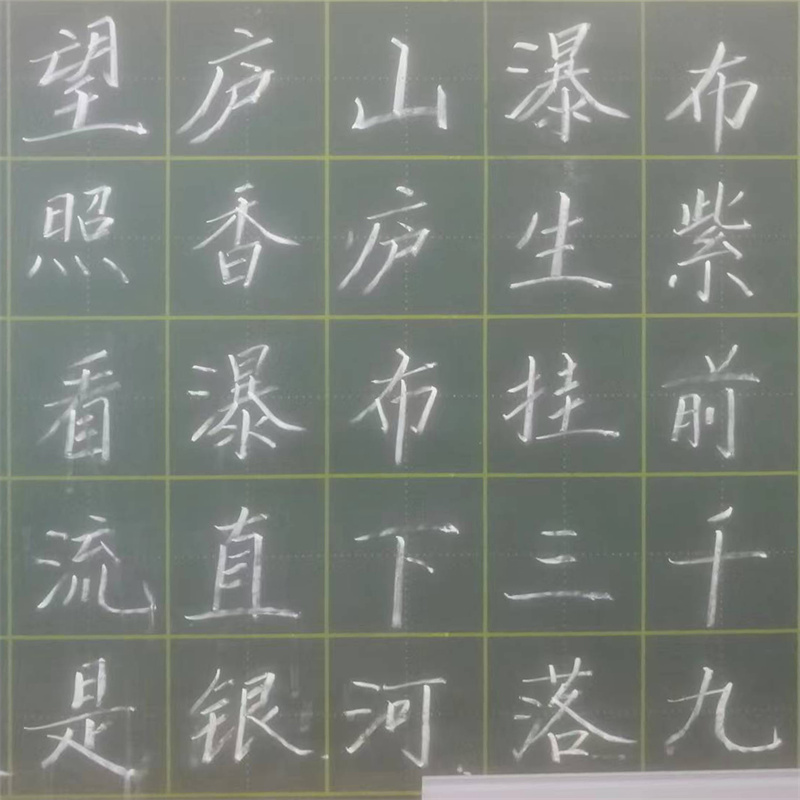 望庐山瀑布
照香庐生紫
看瀑布挂前
流直下三千
是银河落九